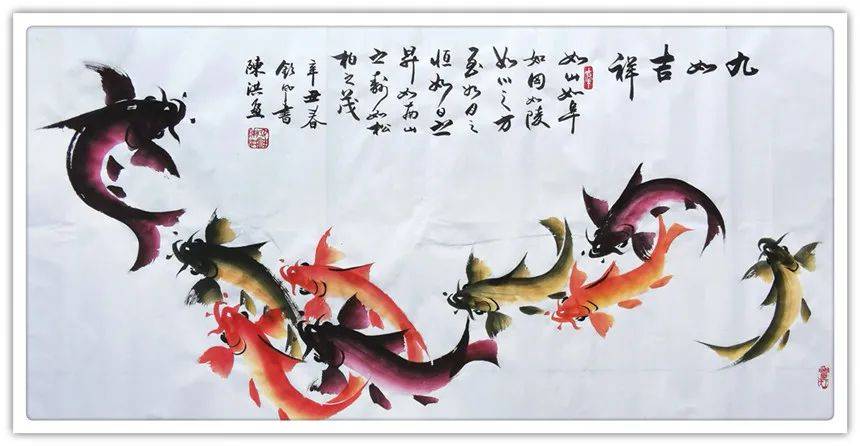 九如吉祥
如山如阜
如冈如陵
如川之方
至如月之
恒如日之
昇如南山
之寿如松
柏之茂
辛丑春
書
陳洪